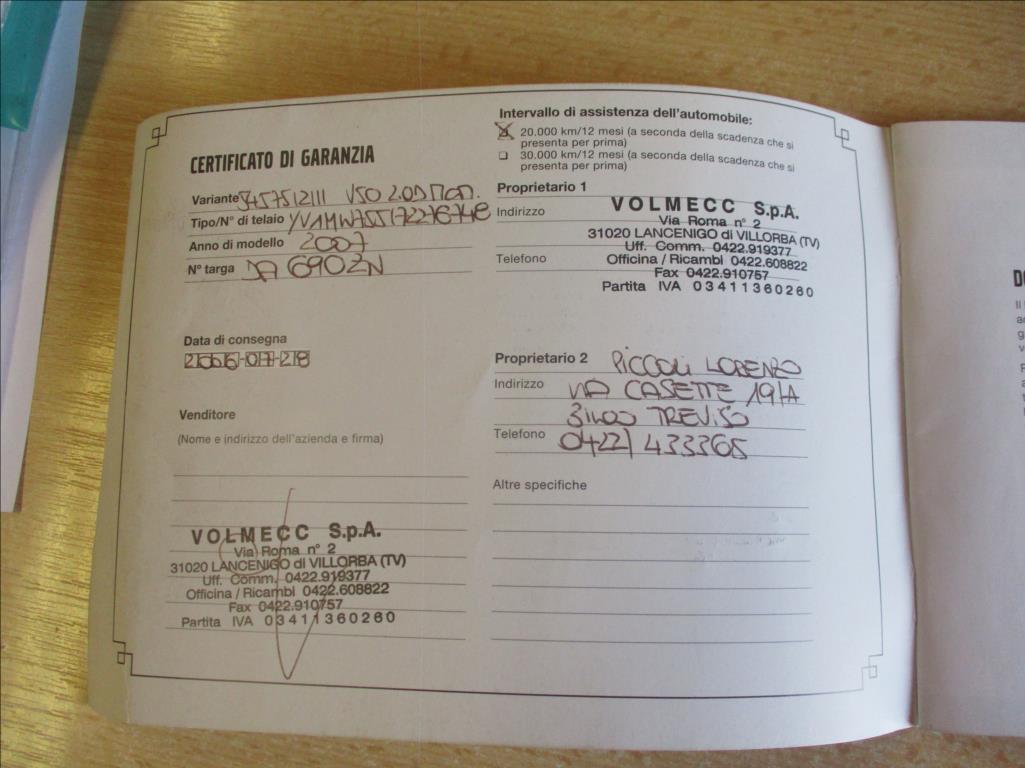 CERTIFICATO DI GARANZIA
Variante 5457512111 V50 2.0D MOM.
Tipo/N° di telaio
Anno di modello 2007
N° targa DA 690ZN
Data di consegna
2006-07-28
Venditore
(Nome e indirizzo dell'azienda e firma)
VOLMECC S.p.A.
Via Roma n° 2
31020 LANCENIGO di VILLORBA (TV)
Uff. Comm. 0422.919377
Officina / Ricambi 0422.608822
Fax 0422.910757
Partita IVA 03411360260
Intervallo di assistenza dell'automobile:
20.000 km/12 mesi (a seconda della scadenza che si
presenta per prima)
30.000 km/12 mesi (a seconda della scadenza che si
presenta per prima)
Proprietario 1
VOLMECC S.p.A.
Indirizzo
Via Roma n° 2
31020 LANCENIGO di VILLORBA (TV)
Uff. Comm. 0422.919377
Telefono
Officina / Ricambi 0422.608822
Fax 0422.910757
Partita IVA 03411360260
Proprietario 2 PICCOLI LORENZO
Indirizzo VIA CASETTE 19/A
31100 TREVISO
Telefono 0422/433365
Altre specifiche